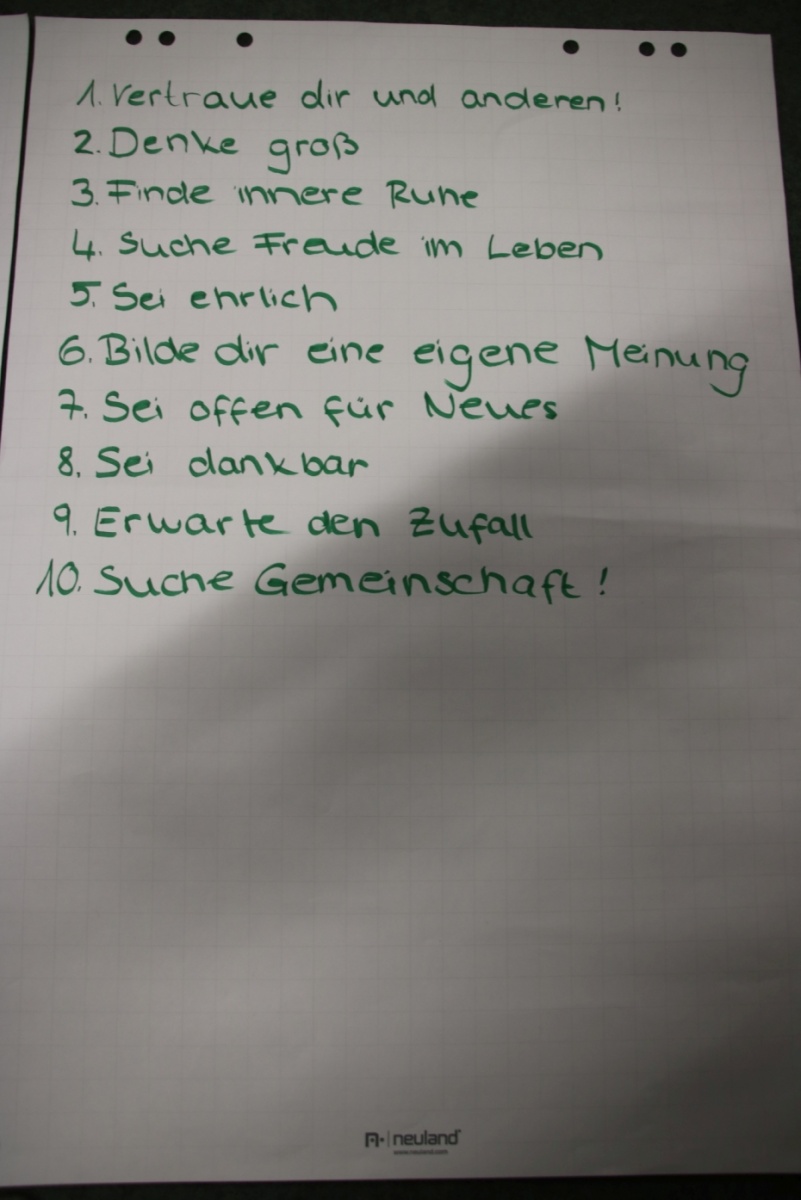 1. Vertraue dir und anderen!
2. Denke groß
3. Finde innere Ruhe
4. Suche Freude im Leben
5. Sei ehrlich
6. Bilde dir eine eigene Meinung
7. Sei offen für Neues
8. Sei dankbar
9. Erwarte den Zufall
10. Suche Gemeinschaft!
neuland
www.neuland.com